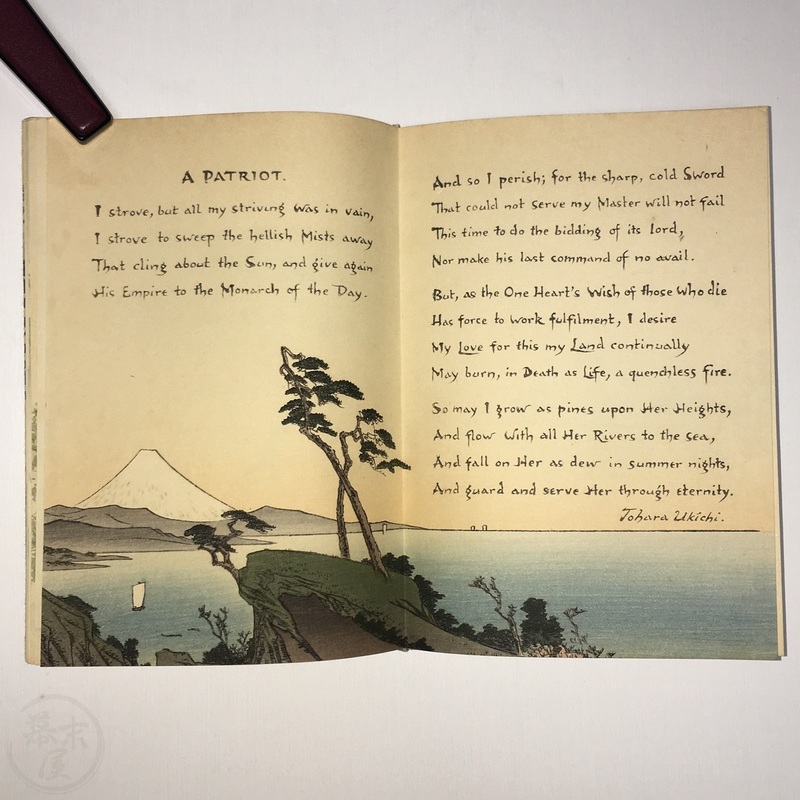 A PATRIOT.
I strove, but all my striving was in vain,
I strove to sweep the hellish Mists away
That cling about the Sun, and give again
His Empire to the Monarch of the Day.
And so I perish; for the sharp, cold Sword
That could not serve my Master will not fail
This time to do the bidding of its lord,
Nor make his last command of no avail.
But, as the One Heart's Wish of those who die
Has force to work fulfilment, I desire
My Love for this my Land continually
May burn, in Death as Life, a quenchless fire.
So may I grow as pines upon Her Heights,
And flow with all Her Rivers to the sea,
And fall on Her as dew in summer nights,
And guard and serve Her through eternity.
Tohara Ukichi.
幕末
屋